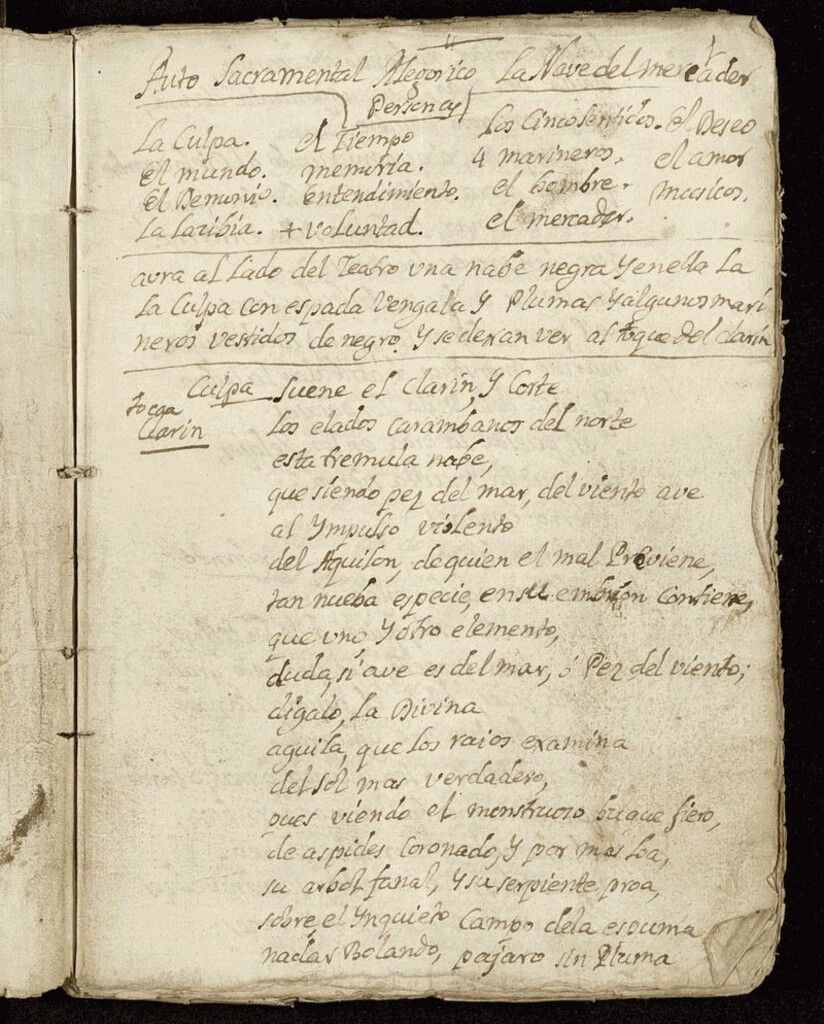 Auto Sacramental Alegorico La Nave del mercader
Personas
La Culpa. el Tiempo Los Cinco sentidos. el Deseo
el mundo. memoria. 4 marineros. el amor
el Demonio. entendimiento. el hombre. musicos.
La Laribia. + voluntad. el mercader.
avra al Lado del Teatro una nabe negra Y enella La
La Culpa con espada Vengala Y Plumas Y algunos mari
neros vestidos de negro. Y se dexan ver al toque del clarin
Culpa Suene el clarin, Y Corte
toca
Clarin
los elados carambanos del norte
esta tremula nabe,
que siendo pez del mar, del viento ave
al Ympulso violento
del Aquilon, de quien el mal Previene,
tan nueba especie, ensu embrion Contiene,
que uno Y otro elemento,
duda, si ave es del mar, ó Pez del viento;
digalo, La Divina
aguila, que los raios examina
del sol mas verdadero,
pues viendo el monstruoso buque fiero,
de aspides Coronado, Y por mas loa,
su arbol fanal, Y su serpiente proa,
sobre el Ynquieto Campo dela espuma
nadas Bolando, pajaro sin Pluma